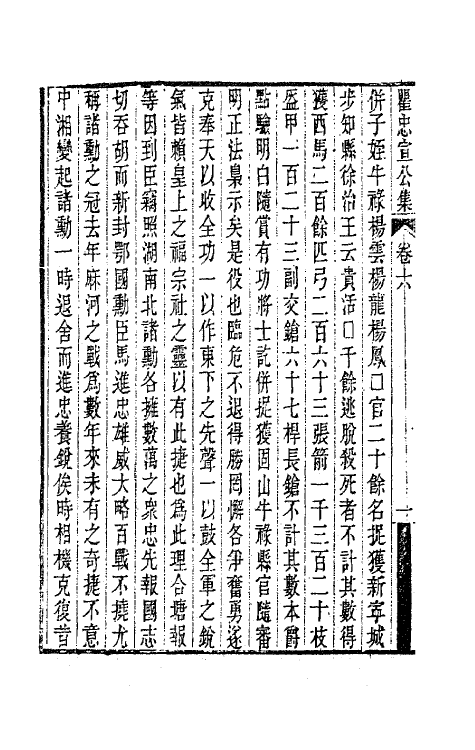 瞿忠宣公集 卷十六 一
併子姪牛祿楊雲楊龍楊鳳口官二十餘名捉獲新寧城
步知縣徐治王云貴活口千餘逃脫殺死者不計其數得
獲西馬二百餘匹弓二百六十三張箭一千三百二十枝
盔甲一百二十三副交鎗六十七桿長鎗不計其數本爵
點驗明白隨賞有功將士訖併捉獲固山牛祿縣官隨審
明正法梟示矣是役也臨危不退得勝罔懈各爭奮勇遂
克奉天以收全功一以作東下之先聲一以鼓全軍之銳
氣皆賴皇上之福宗社之靈以有此捷也爲此理合塘報
等因到臣竊照湖南北諸勳各擁數萬之衆忠先報國志
切吞胡而新封鄂國勳臣馬進忠雄威大略百戰不撓尤
稱諸勳之冠去年麻河之戰爲數年來未有之奇捷不意
中湘變起諸勳一時退舍而進忠養銳俟時相機克復昔